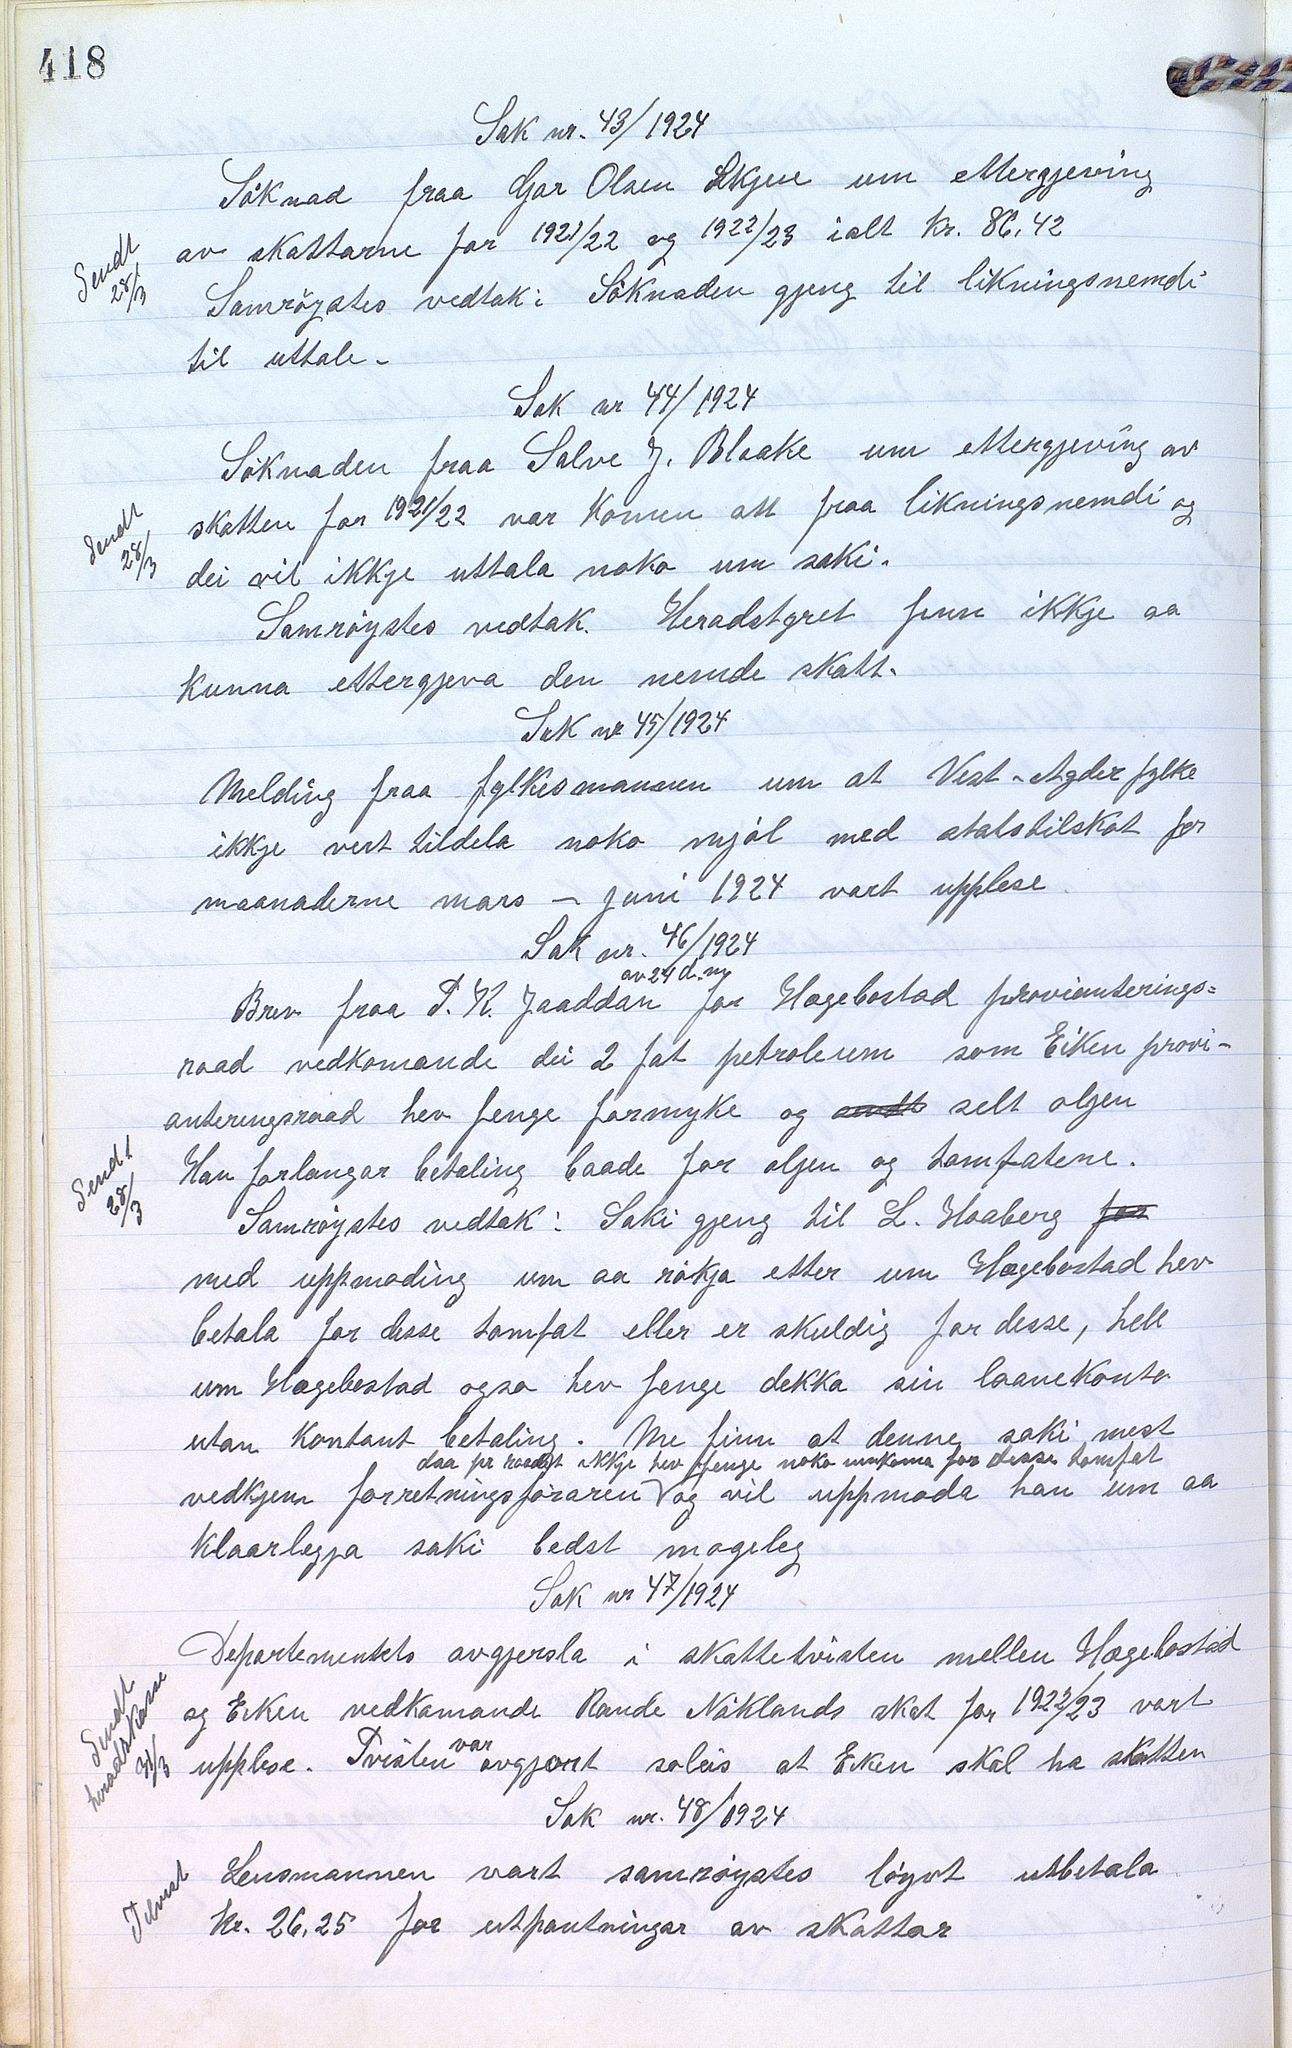 418
Sak nr. 43/1924
Söknad fraa Gar Olsen Skjen um ettergjeving
av skattarne for 1921/22 og 1922/23 ialt kr. 86,42
Sendt
28/3
Samröystes vedtak: Söknaden gjeng til likningsnemdi
til uttale -
Sak nr 44/1924
Söknaden fraa Salve J. Blaake um ettergjeving av
skatten for 1921/22 var komen att fraa likningsnemdi og
Sendt
28/3
dei vil ikkje uttala noko um saki.
Samröystes vedtak. Heradstyret finn ikkje aa
kunna ettergjeva den nemde skatt.
Sak nr 45/1924
Melding fraa fylkesmannen um at Vest-Agder fylke
ikkje vert tildela noko mjöl med statstilskot for
maanaderne mars - juni 1924 vart upplese
Sak nr. 46/1924
av 24 d. m.
Brev fraa T. K. Jaaddan for Hægebostad provianterings=
raad vedkomande dei 2 fat petroleum som Eiken provi-
anteringsraad hev fenge formyke og sendt selt oljen
Han forlangar betaling baade for oljen og tomfatene.
Sendt
28/3
Samröystes vedtak: Saki gjeng til L. Haaberg for
med uppmoding um aa rökja etter um Hægebostad hev
betala for desse tomfat eller er skuldig for desse, hell
um Hægebostad ogso hev fenge dekka sin laanekonto
utan kontant betaling. Me finn at denne saki mest
daa pr raadet ikkje hev fenge noko innkoma for desse tomfat
vedkjem forretningsföraren og vil uppmoda han um aa
klaarleggja saki bedst mogeleg
Sak nr 47/1924
Departementets avgjersla i skattetvisten mellen Hægebostad
og Eiken vedkomande Rande Nöklands skat for 1922/23 vart
Sendt
heradskasse
31/3
upplese. Tvisten var avgjort soleis at Eiken skal ha skatten
Sak nr. 48/1924
Tilvist
Lensmannen vart samröystes löyvt utbetala
kr. 26,25 for utpantningar av skattar